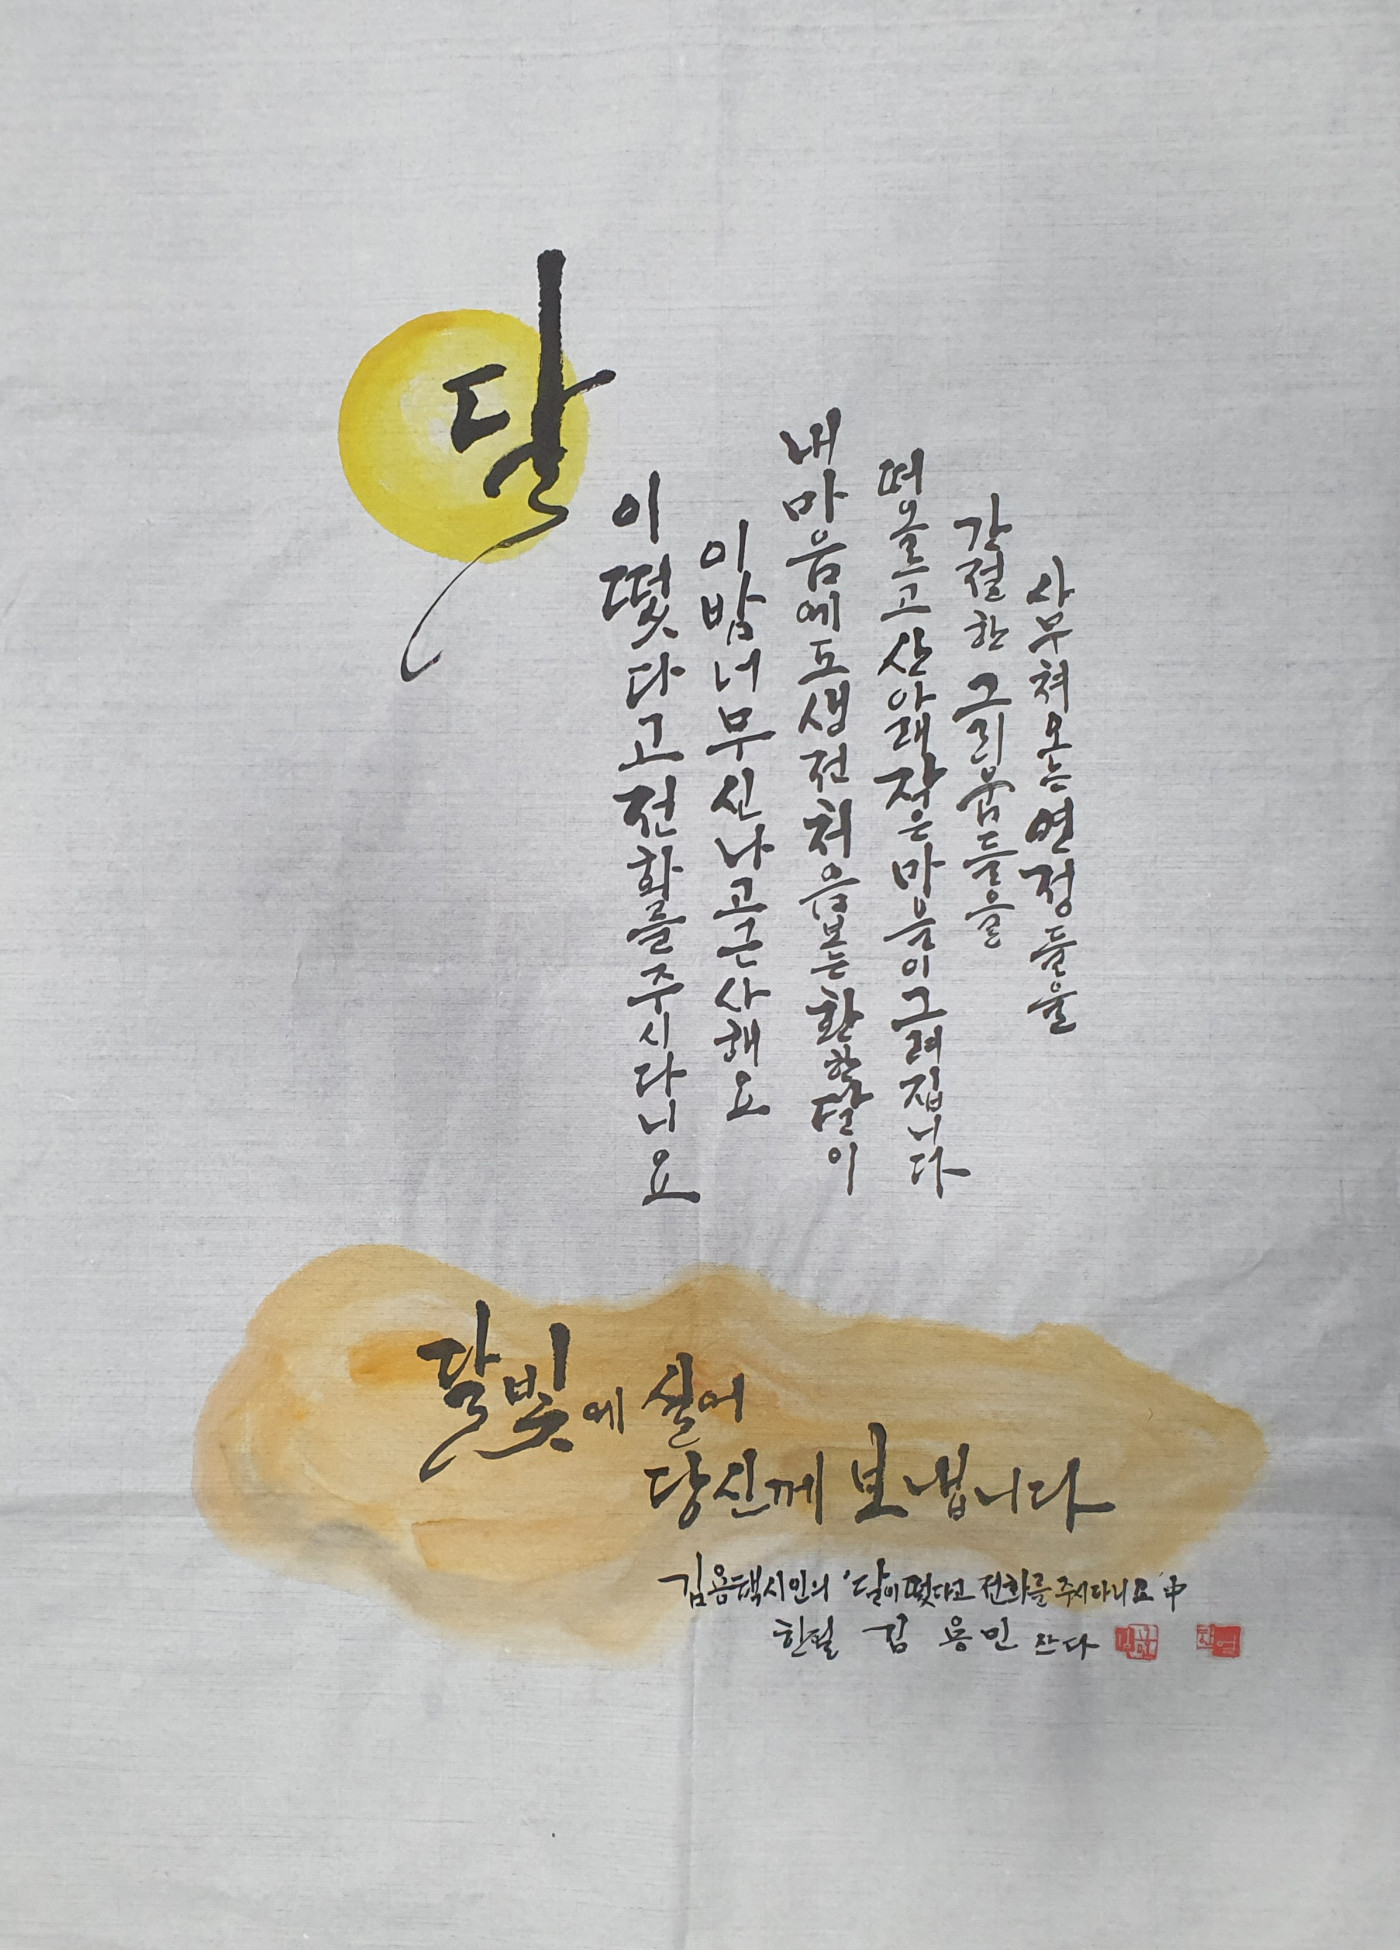 달
이 떴다고 전화를 주시다니요
이 밤 너무 신나고 근사해요
내 마음에도 생전 처음 보는 환한 달이
떠오르고 산 아래 작은 마음이 그려집니다
간절한 그리움들을
사무쳐오는 연정들을
달빛에 실어
당신께 보냅니다
김용택시인의 '달이 떴다고 전화를 주시다니요' 中
한필 김용민